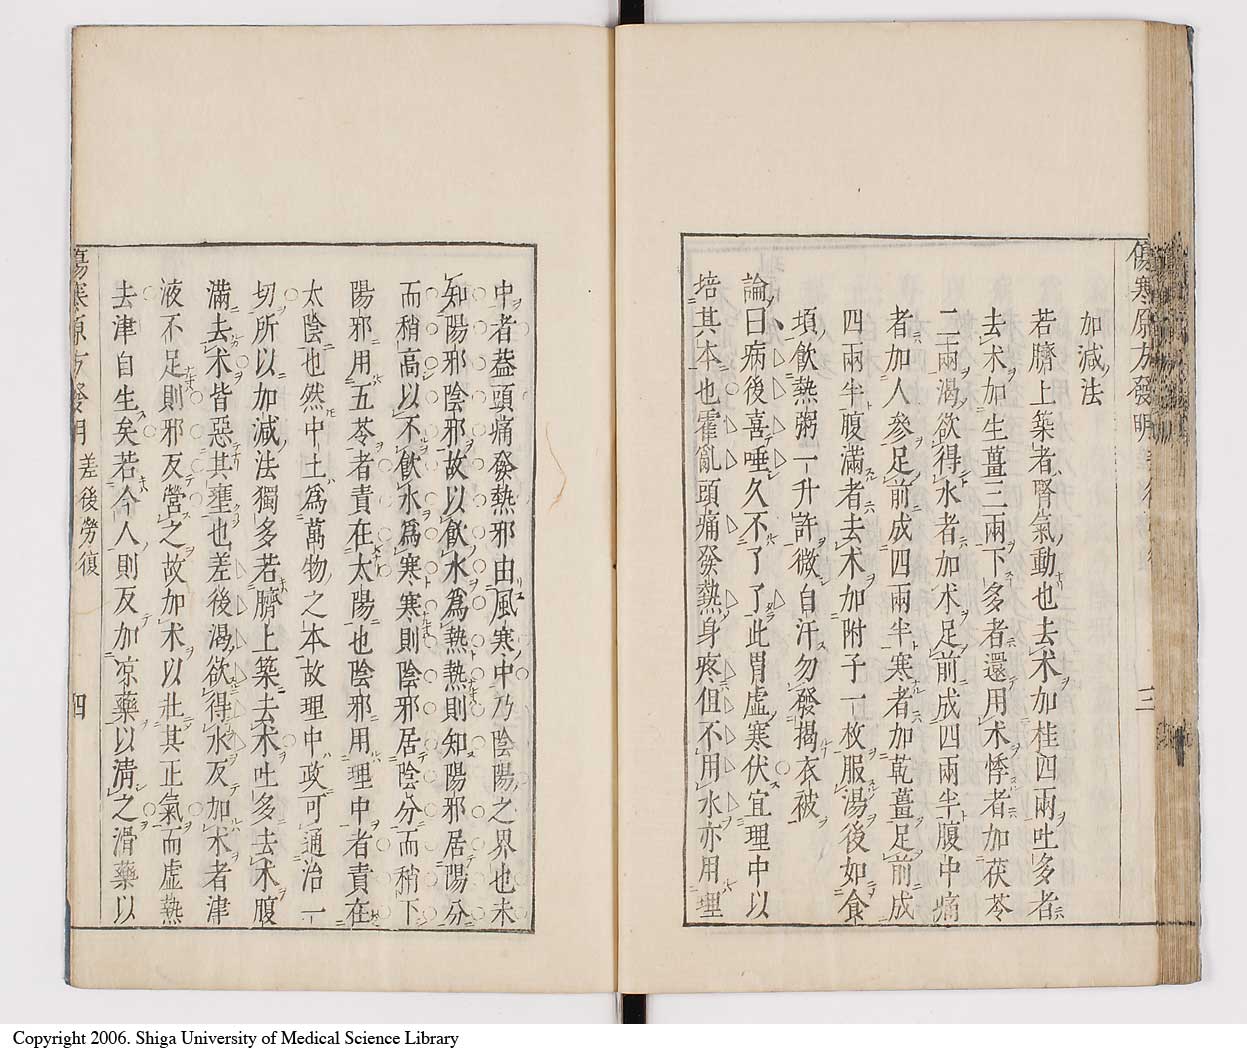 傷寒原方發明 差後勞復 三
加減法
若臍上築者腎氣動也去术加桂四兩吐多者
去术加生薑三兩下多者還用术悸者加茯苓
二兩渴欲得水者加术足前成四兩半腹中痛
者加人參足前成四兩半寒者加乾薑足前成
四兩半腹滿者去术加附子一枚服湯後如食
頃飲熱粥一升許微自汗勿發揭衣被
論曰病後喜唾久不了了此胃虛寒伏宜理中以
培其本也霍亂頭痛發熱身疼但不用水亦用理
中者葢頭痛發熱邪由風寒中乃陰陽之界也未
知陽邪陰邪故以飲水爲熱熱則知陽邪居陽分
而稍高以不飲水爲寒寒則陰邪居陰分而稍下
陽邪用五苓者責在太陽也陰邪用理中者責在
太陰也然中土爲萬物之本故理中政可通治一
切所以加減法獨多若臍上築去术吐多去术腹
滿去术皆惡其壅也差後渴欲得水反加术者津
液不足則邪反營之故加术以壯其正氣而虛熱
去津自生矣若今人則反加凉藥以清之滑藥以
傷寒原方發明 差後勞復 四
Copyright 2006. Shiga University of Medical Science Library